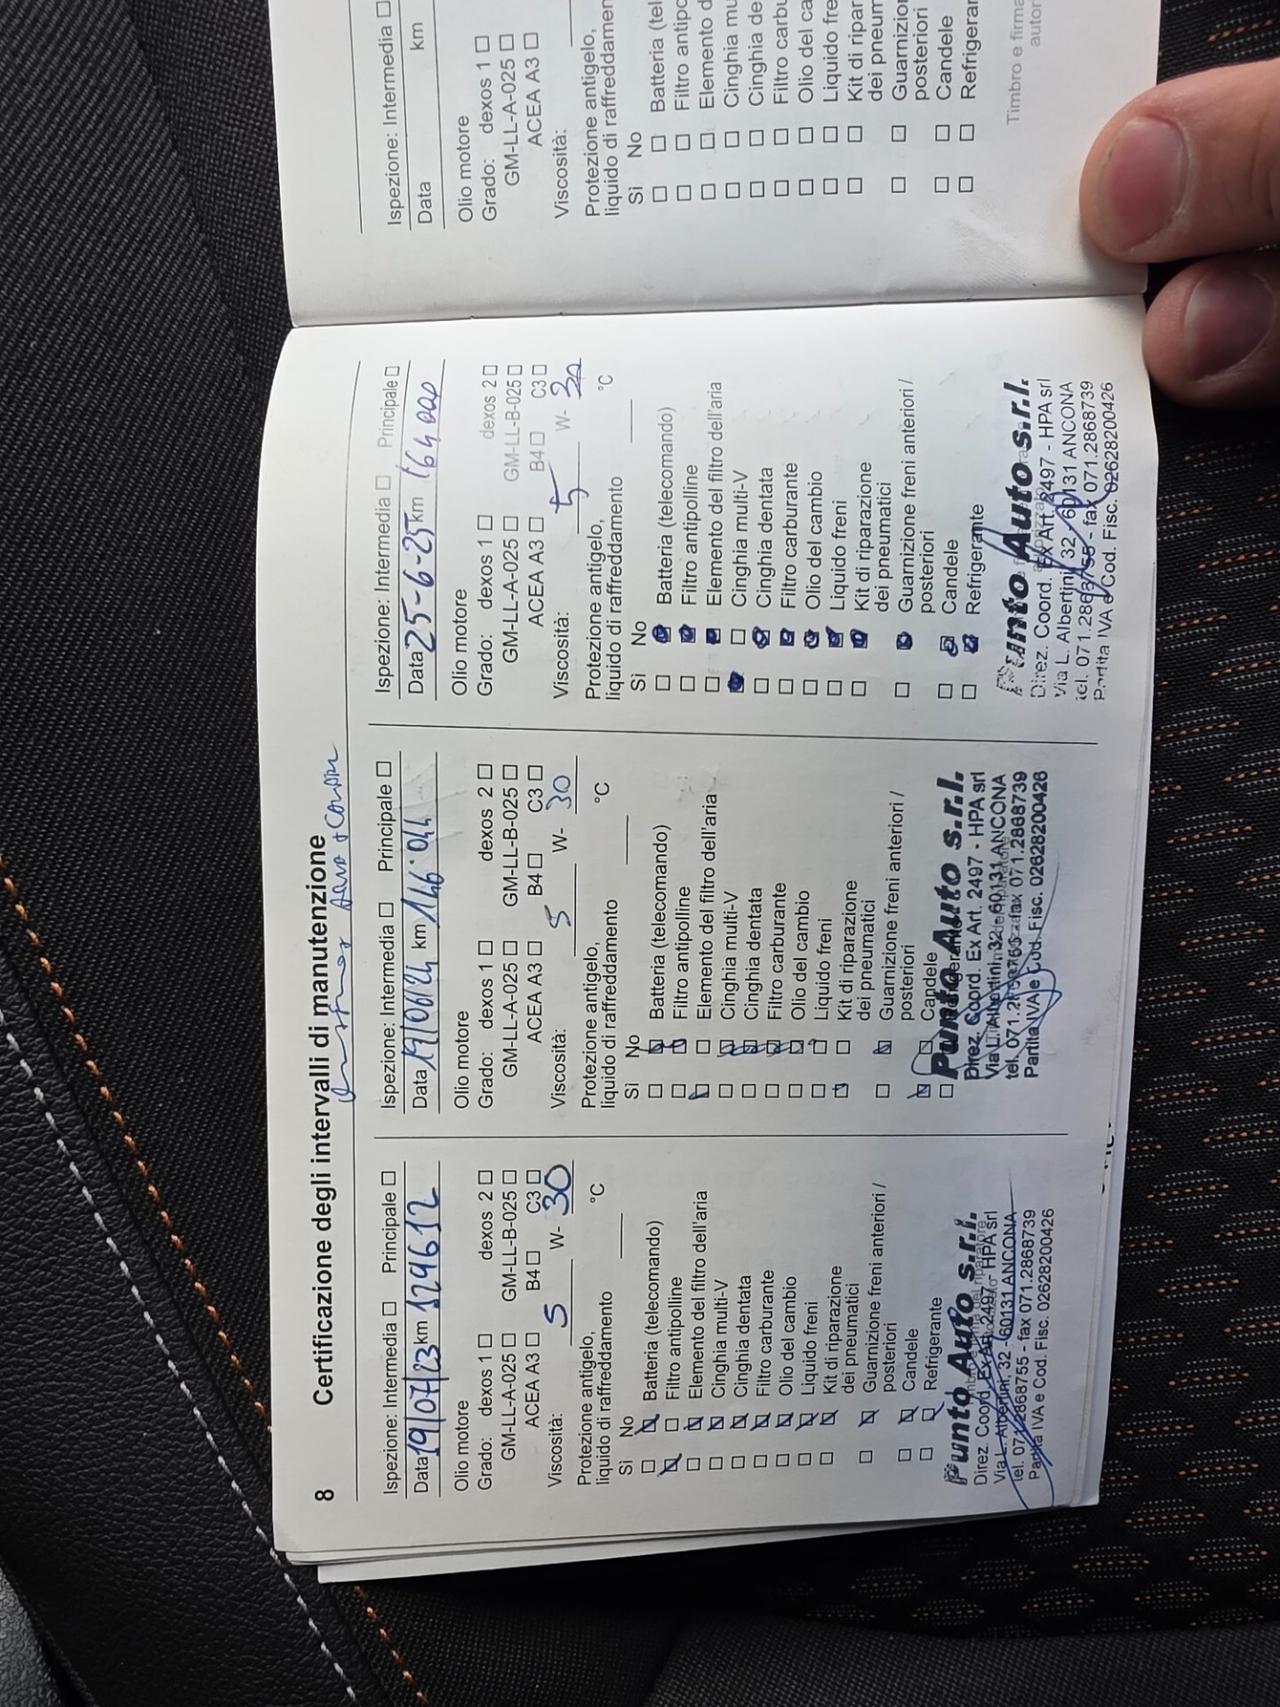 8 Certificazione degli intervalli di manutenzione
Ispezione: Intermedia □ Principale □
Data 19/07/23 km 129612
Olio motore
Grado: dexos 1 □ dexos 2 □
GM-LL-A-025 □ GM-LL-B-025 □
ACEA A3 □ B4 □ C3 □
Viscosità: 5 W- 30
Protezione antigelo,
liquido di raffreddamento °C
Sì No
Batteria (telecomando)
Filtro antipolline
Elemento del filtro dell'aria
Cinghia multi-V
Cinghia dentata
Filtro carburante
Olio del cambio
Liquido freni
Kit di riparazione
dei pneumatici
Guarnizione freni anteriori /
posteriori
Candele
Refrigerante
Punto Auto s.r.l.
Direz. Coord. Ex Art. 2497 - HPA srl
Via L. Albertini, 32 - 60131 ANCONA
tel. 071.2868755 - fax 071.2868739
Partita IVA e Cod. Fisc. 02628200426
Ispezione: Intermedia □ Principale □
Data 19/06/24 km 146.044
Olio motore
Grado: dexos 1 □ dexos 2 □
GM-LL-A-025 □ GM-LL-B-025 □
ACEA A3 □ B4 □ C3 □
Viscosità: 5 W- 30
Protezione antigelo,
liquido di raffreddamento °C
Sì No
Batteria (telecomando)
Filtro antipolline
Elemento del filtro dell'aria
Cinghia multi-V
Cinghia dentata
Filtro carburante
Olio del cambio
Liquido freni
Kit di riparazione
dei pneumatici
Guarnizione freni anteriori /
posteriori
Candele
Punto Auto s.r.l.
Direz. Coord. Ex Art. 2497 - HPA srl
Via L. Albertini, 32 - 60131 ANCONA
tel. 071.2868755 - fax 071.2868739
Partita IVA e Cod. Fisc. 02628200426
Ispezione: Intermedia □ Principale □
Data 25-6-25 km 164000
Olio motore
Grado: dexos 1 □ dexos 2 □
GM-LL-A-025 □ GM-LL-B-025 □
ACEA A3 □ B4 □ C3 □
Viscosità: 5 W- 30
Protezione antigelo,
liquido di raffreddamento °C
Sì No
Batteria (telecomando)
Filtro antipolline
Elemento del filtro dell'aria
Cinghia multi-V
Cinghia dentata
Filtro carburante
Olio del cambio
Liquido freni
Kit di riparazione
dei pneumatici
Guarnizione freni anteriori /
posteriori
Candele
Refrigerante
Punto Auto s.r.l.
Direz. Coord. Ex Art. 2497 - HPA srl
Via L. Albertini, 32 - 60131 ANCONA
tel. 071.2868755 - fax 071.2868739
Partita IVA e Cod. Fisc. 02628200426
Ispezione: Intermedia □
Data km
Olio motore
Grado: dexos 1 □
GM-LL-A-025 □
ACEA A3 □
Viscosità:
Protezione antigelo,
liquido di raffreddamen
Sì No
Batteria (tel
Filtro antipo
Elemento d
Cinghia mu
Cinghia de
Filtro carbu
Olio del ca
Liquido fre
Kit di ripar
dei pneum
Guarnizio
posteriori
Candele
Refrigerar
Timbro e firma
autor